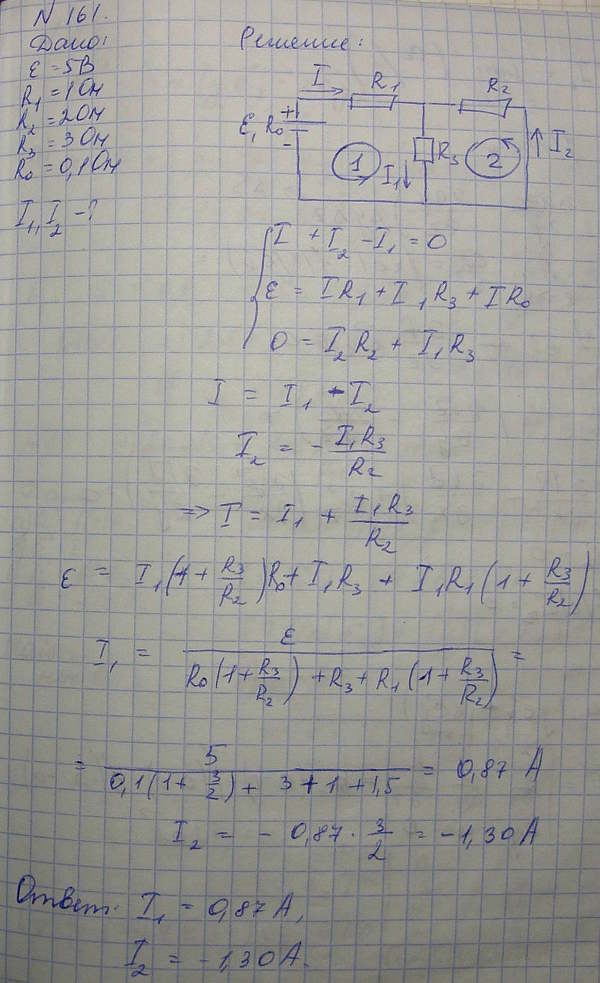 N 161.
Дано: Решение:
ε = 5В
R₁ = 1 Ом
R₂ = 2 Ом
R₃ = 3 Ом
R₀ = 0,1 Ом
I₁, I₂ - ?
I R₁ R₂
ε, R₀ + - 1 I₁ R₃ 2 I₂
I + I₂ - I₁ = 0
ε = IR₁ + I₁R₃ + IR₀
0 = I₂R₂ + I₁R₃
I = I₁ - I₂
I₂ = - I₁R₃/R₂
=> I = I₁ + I₁R₃/R₂
ε = I₁(1 + R₃/R₂)R₀ + I₁R₃ + I₁R₁(1 + R₃/R₂)
I₁ = ε/(R₀(1 + R₃/R₂) + R₃ + R₁(1 + R₃/R₂)) =
= 5/(0,1(1 + 3/2) + 3 + 1 + 1,5) = 0,87 А
I₂ = - 0,87 · 3/2 = -1,30 А
Ответ: I₁ = 0,87 А,
I₂ = -1,30 А.